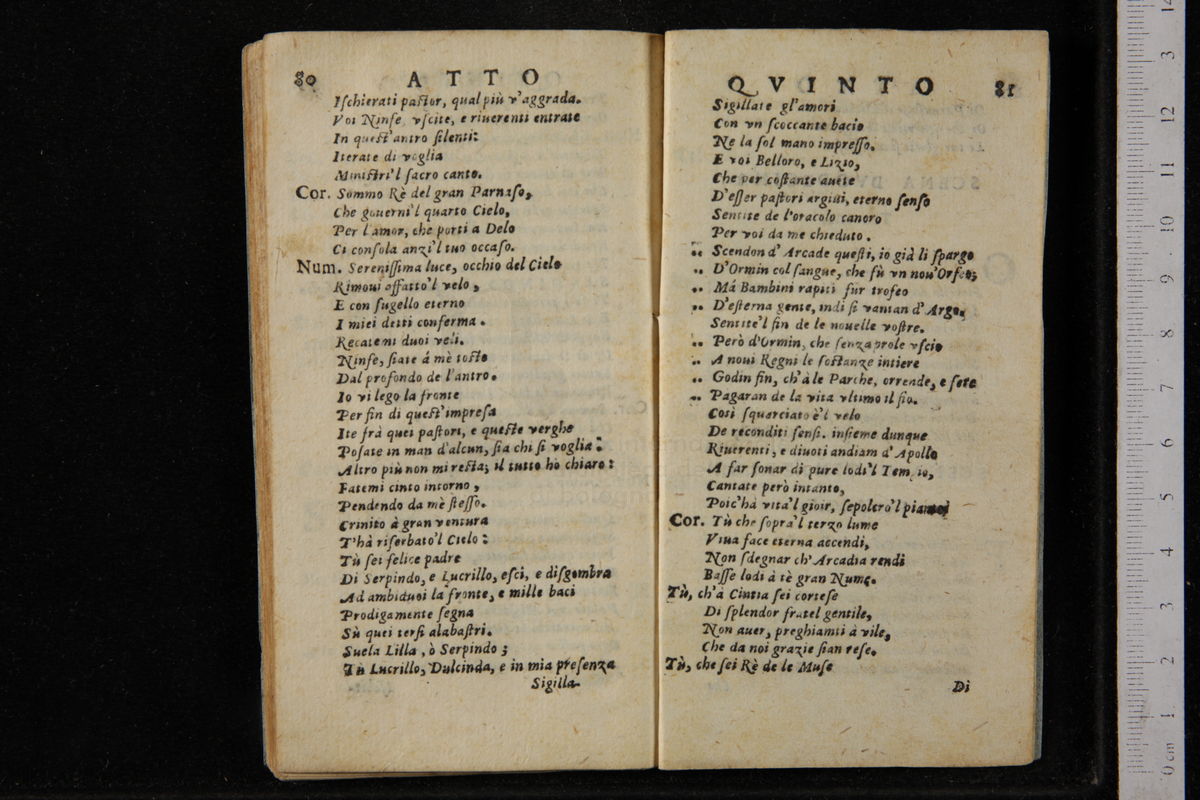 80 ATTO
Ischierati pastor, qual più v'aggrada.
Voi Ninfe, vscite, e riuerenti entrate
In quest'antro silenti:
Iterate di voglia
Ministri'l sacro canto.
Cor. Sommo Rè del gran Parnaso,
Che gouerni'l quarto Cielo,
Per l'amor, che porti a Delo
Ci consola anzi'l tuo occaso.
Num. Serenissima luce, occhio del Cielo
Rimoui affatto'l velo,
E con sugello eterno
I miei detti conferma.
Recatemi duoi veli.
Ninfe, siate á mè tosto
Dal profondo de l'antro.
Io vi lego la fronte
Per fin di quest'impresa
Ite frà quei pastori, e queste verghe
Posate in man d'alcun, sia chi si voglia:
Altro più non mi resta; il tutto hò chiaro:
Fatemi cinto intorno,
Pendendo da mè stesso.
Crinito à gran ventura
T'hà riserbato'l Cielo:
Tù sei felice padre
Di Serpindo, e Lucrillo, esci, e disgombra
Ad ambiduoi la fronte, e mille baci
Prodigamente segna
Sù quei tersi alabastri.
Suela Lilla, ò Serpindo;
Tù Lucrillo, Dulcinda, e in mia presenza
Sigilla-
QVINTO 81
Sigillate gl'amori
Con vn scoccante bacio
Ne la sol mano impresso.
E voi Belloro, e Lizio,
Che per costante auete
D'esser pastori argiui, eterno senso
Sentite de l'oracolo canoro
Per voi da me chieduto.
„ Scendon d'Arcade questi, io già li spargo
„ D'Ormin col sangue, che fù vn nou'Orfeo;
„ Má Bambini rapiti fur trofeo
„ D'esterna gente, indi si vantan d'Argo.
Sentite'l fin de le nouelle vostre.
„ Però d'Ormin, che senza prole vscio
„ A noui Regni le sostanze intiere
„ Godin fin, ch'à le Parche, orrende, e fere
„ Pagaran de la vita vltimo il fio.
Così squarciato è'l velo
De reconditi sensi. insieme dunque
Riuerenti, e diuoti andiam d'Apollo
A far sonar di pure lodi'l Tempio,
Cantate però intanto,
Poic'hà vita'l gioir, sepolcro'l pianto
Cor. Tù che sopra'l terzo lume
Viua face eterna accendi,
Non sdegnar ch'Arcadia rendi
Basse lodi à tè gran Nume.
Tù, ch'à Cintia sei cortese
Di splendor fratel gentile,
Non auer, preghiamti à vile,
Che da noi grazie sian rese.
Tù, che sei Rè de le Muse
Di
0 cm 1 2 3 4 5 6 7 8 9 10 11 12 3 14